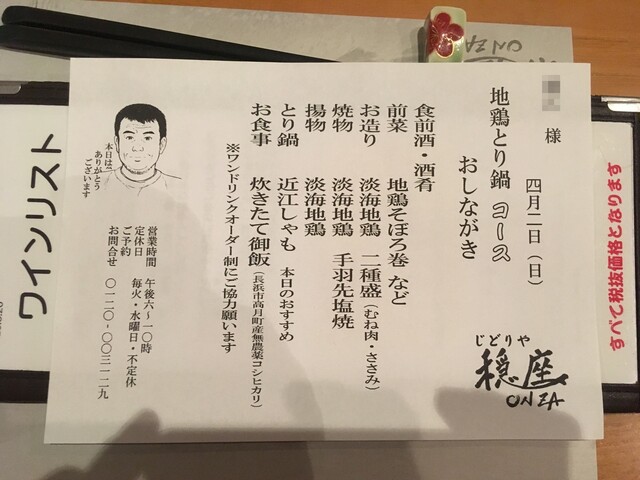 様
四月二日(日)
地鶏とり鍋 コース
おしながき
じどりや
穏座
ONZA
食前酒・酒肴
前菜 地鶏そぼろ巻 など
お造り 淡海地鶏 二種盛(むね肉・ささみ)
焼物 淡海地鶏 手羽先塩焼
揚物 淡海地鶏
とり鍋 近江しゃも 本日のおすすめ
お食事 炊きたて御飯(長浜市高月町産無農薬コシヒカリ)
※ワンドリンクオーダー制にご協力願います
本日は、
ありがとう
ございます
営業時間 午後六〜一〇時
定休日 毎火・水曜日・不定休
ご予約
お問合せ 〇一二〇-〇〇三一二九
ワインリスト
すべて税抜価格となります
ONZA